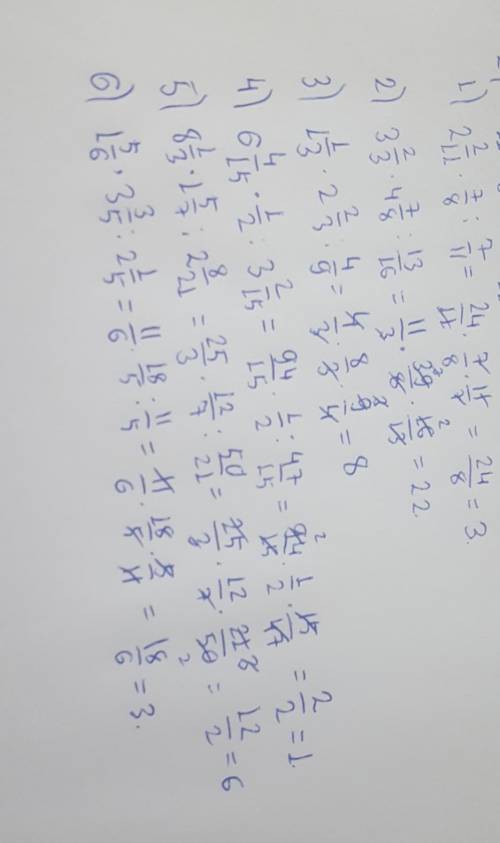 1) 2 2/11 · 7/8 : 7/11 = 24/11 · 7/8 · 11/7 = 24/8 = 3.
2) 3 2/3 · 4 7/8 : 13/16 = 11/3 · 39/8 · 16/13 = 22.
3) 1 1/3 · 2 2/3 : 4/9 = 4/3 · 8/3 · 9/4 = 8
4) 6 4/15 · 1/2 : 3 2/15 = 94/15 · 1/2 : 47/15 = 94/15 · 1/2 · 15/47 = 2/2 = 1.
5) 8 1/3 · 1 5/7 : 2 8/21 = 25/3 · 12/7 : 50/21 = 25/3 · 12/7 · 21/50 = 12/2 = 6
6) 1 5/6 · 3 3/5 : 2 1/5 = 11/6 · 18/5 : 11/5 = 11/6 · 18/5 · 5/11 = 18/6 = 3.